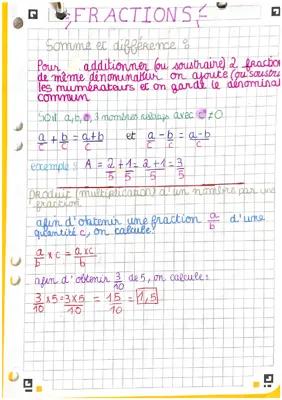 FRACTIONS
Somme et différence :
Pour additionner (ou soustraire) 2 fraction
de même dénominateur on ajoute (ou
les numérateurs et on garde le dénominat
commun
Soit a, b, c, 3 nombres relatifs avec c ≠ 0
a/c + b/c = a+b/c et a/c - b/c = a-b/c
exemple : A = 2/5 + 1/5 = 2+1/5 = 3/5
Produit (multiplication) d'un nombre par une
fraction
afin d'obtenir une fraction a/b d'une
quantité c, on calcule :
a/b × c = a×c/b
afin d'obtenir 3/10 de 5, on calcule :
3/10 × 5 = 3×5/10 = 15/10 = 1,5